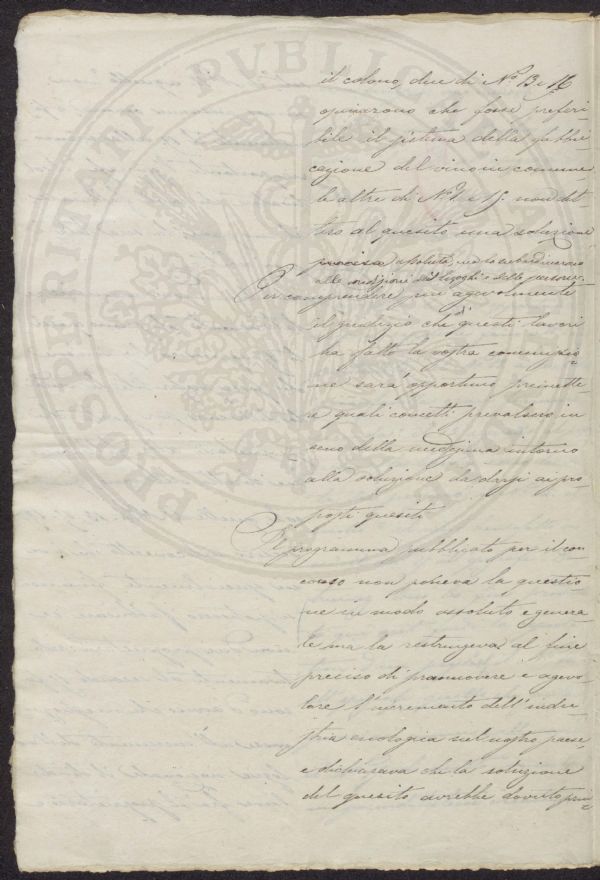 il colono, due di Nº 13 e 16
opinarono che fosse preferi-
bile il sistema della fabbri-
cazione del vino in comune
le altre di Nº e 15. non det-
tero al quesito una soluzione
precisa assoluta, ma la subordinarono
alle condizioni dei luoghi e delle persone.
Per comprendere più agevolmente
il giudizio che di questi lavori
ha fatto la vostra commissio-
ne sarà opportuno premette-
re quali concetti prevalsero in
seno della medesima intorno
alla soluzione da darsi ai pro-
posti quesiti
Il programma pubblicato per il con-
corso non poneva la questio-
ne in modo assoluto e genera-
le ma la restringeva al fine
preciso di promuovere e agevo-
lare l'incremento dell'indu-
stria enologica nel nostro paese
e dichiarava che la soluzione
del quesito avrebbe dovuto prin-
PROSPERITATI PUBLICAE AUGENDAE